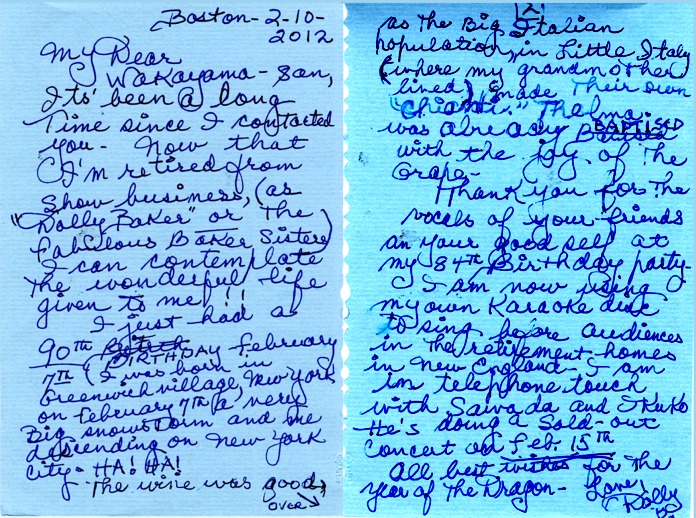 Boston- 2-10-
2012
My Dear
Wakayama-San,
Its' been @ long
Time since I contacted
you- Now that
I'm retired from
Show business, (as
"Dolly Baker" or The
Fabulous Baker Sisters)
I can contemplate
The wonderful life
given to me!!
I just had a
90TH BIRTHDAY February
7TH (I was born in
Greenwich Village, New York
on February 7TH a very
Big snowstorm and me
descending on New York
City- HA! HA!
The wine was good,
over
as The Big Italian
population, in Little Italy
(where my grandmother
lived) made Their own
"Chianti." Thelma
was already BAPTISED
with the joy of The
Grape-
Thank you for The
vocals of your friends
an your good self at
my 84TH Birthday party-
I am now using
my own Karaoke disc
to sing before audiences
in The retirement-homes
in New England- I am
in telephone touch
with Sawada and Ikuko
He's doing a Sold-out
Concert on Feb. 15TH
All best wishes for The
Year of The Dragon- Love!
Dolly